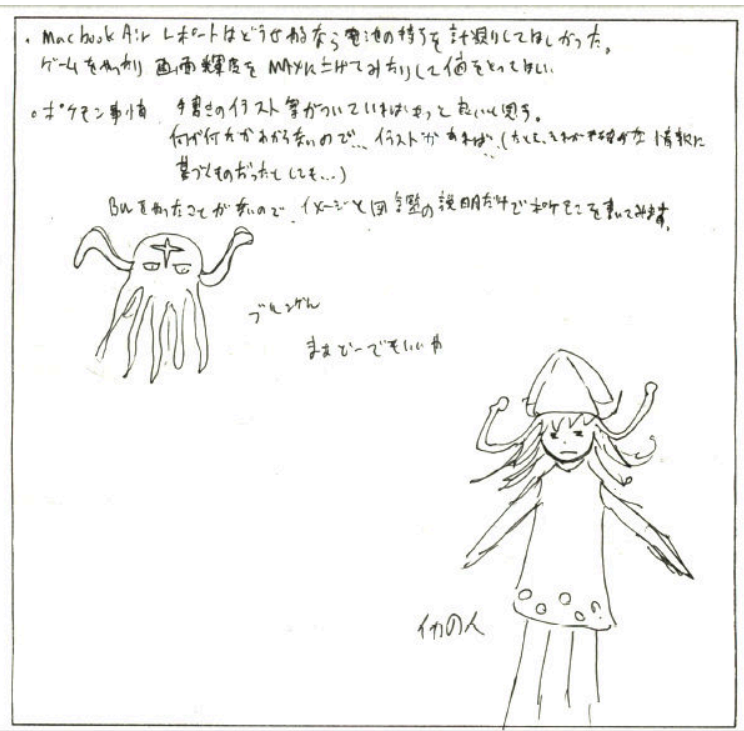 ・Macbook Air レポートはどうせやるなら電池の持ちを計測してほしかった。
ゲームをやったり 画面輝度をMAXに上げてみたりして値をとってほしい
・ポケモン事情 手書きのイラスト等がついていればもっと良いと思う。
何が何だかわからないので… イラストがあれば…(たとえ、それが不確かな情報に
基づくものだったとしても…)
BWをやったことがないので、イメージと図鑑の説明だけでポケモンを書いてみます。
ブルンゲル
まぁどーでもいいや
イカの人